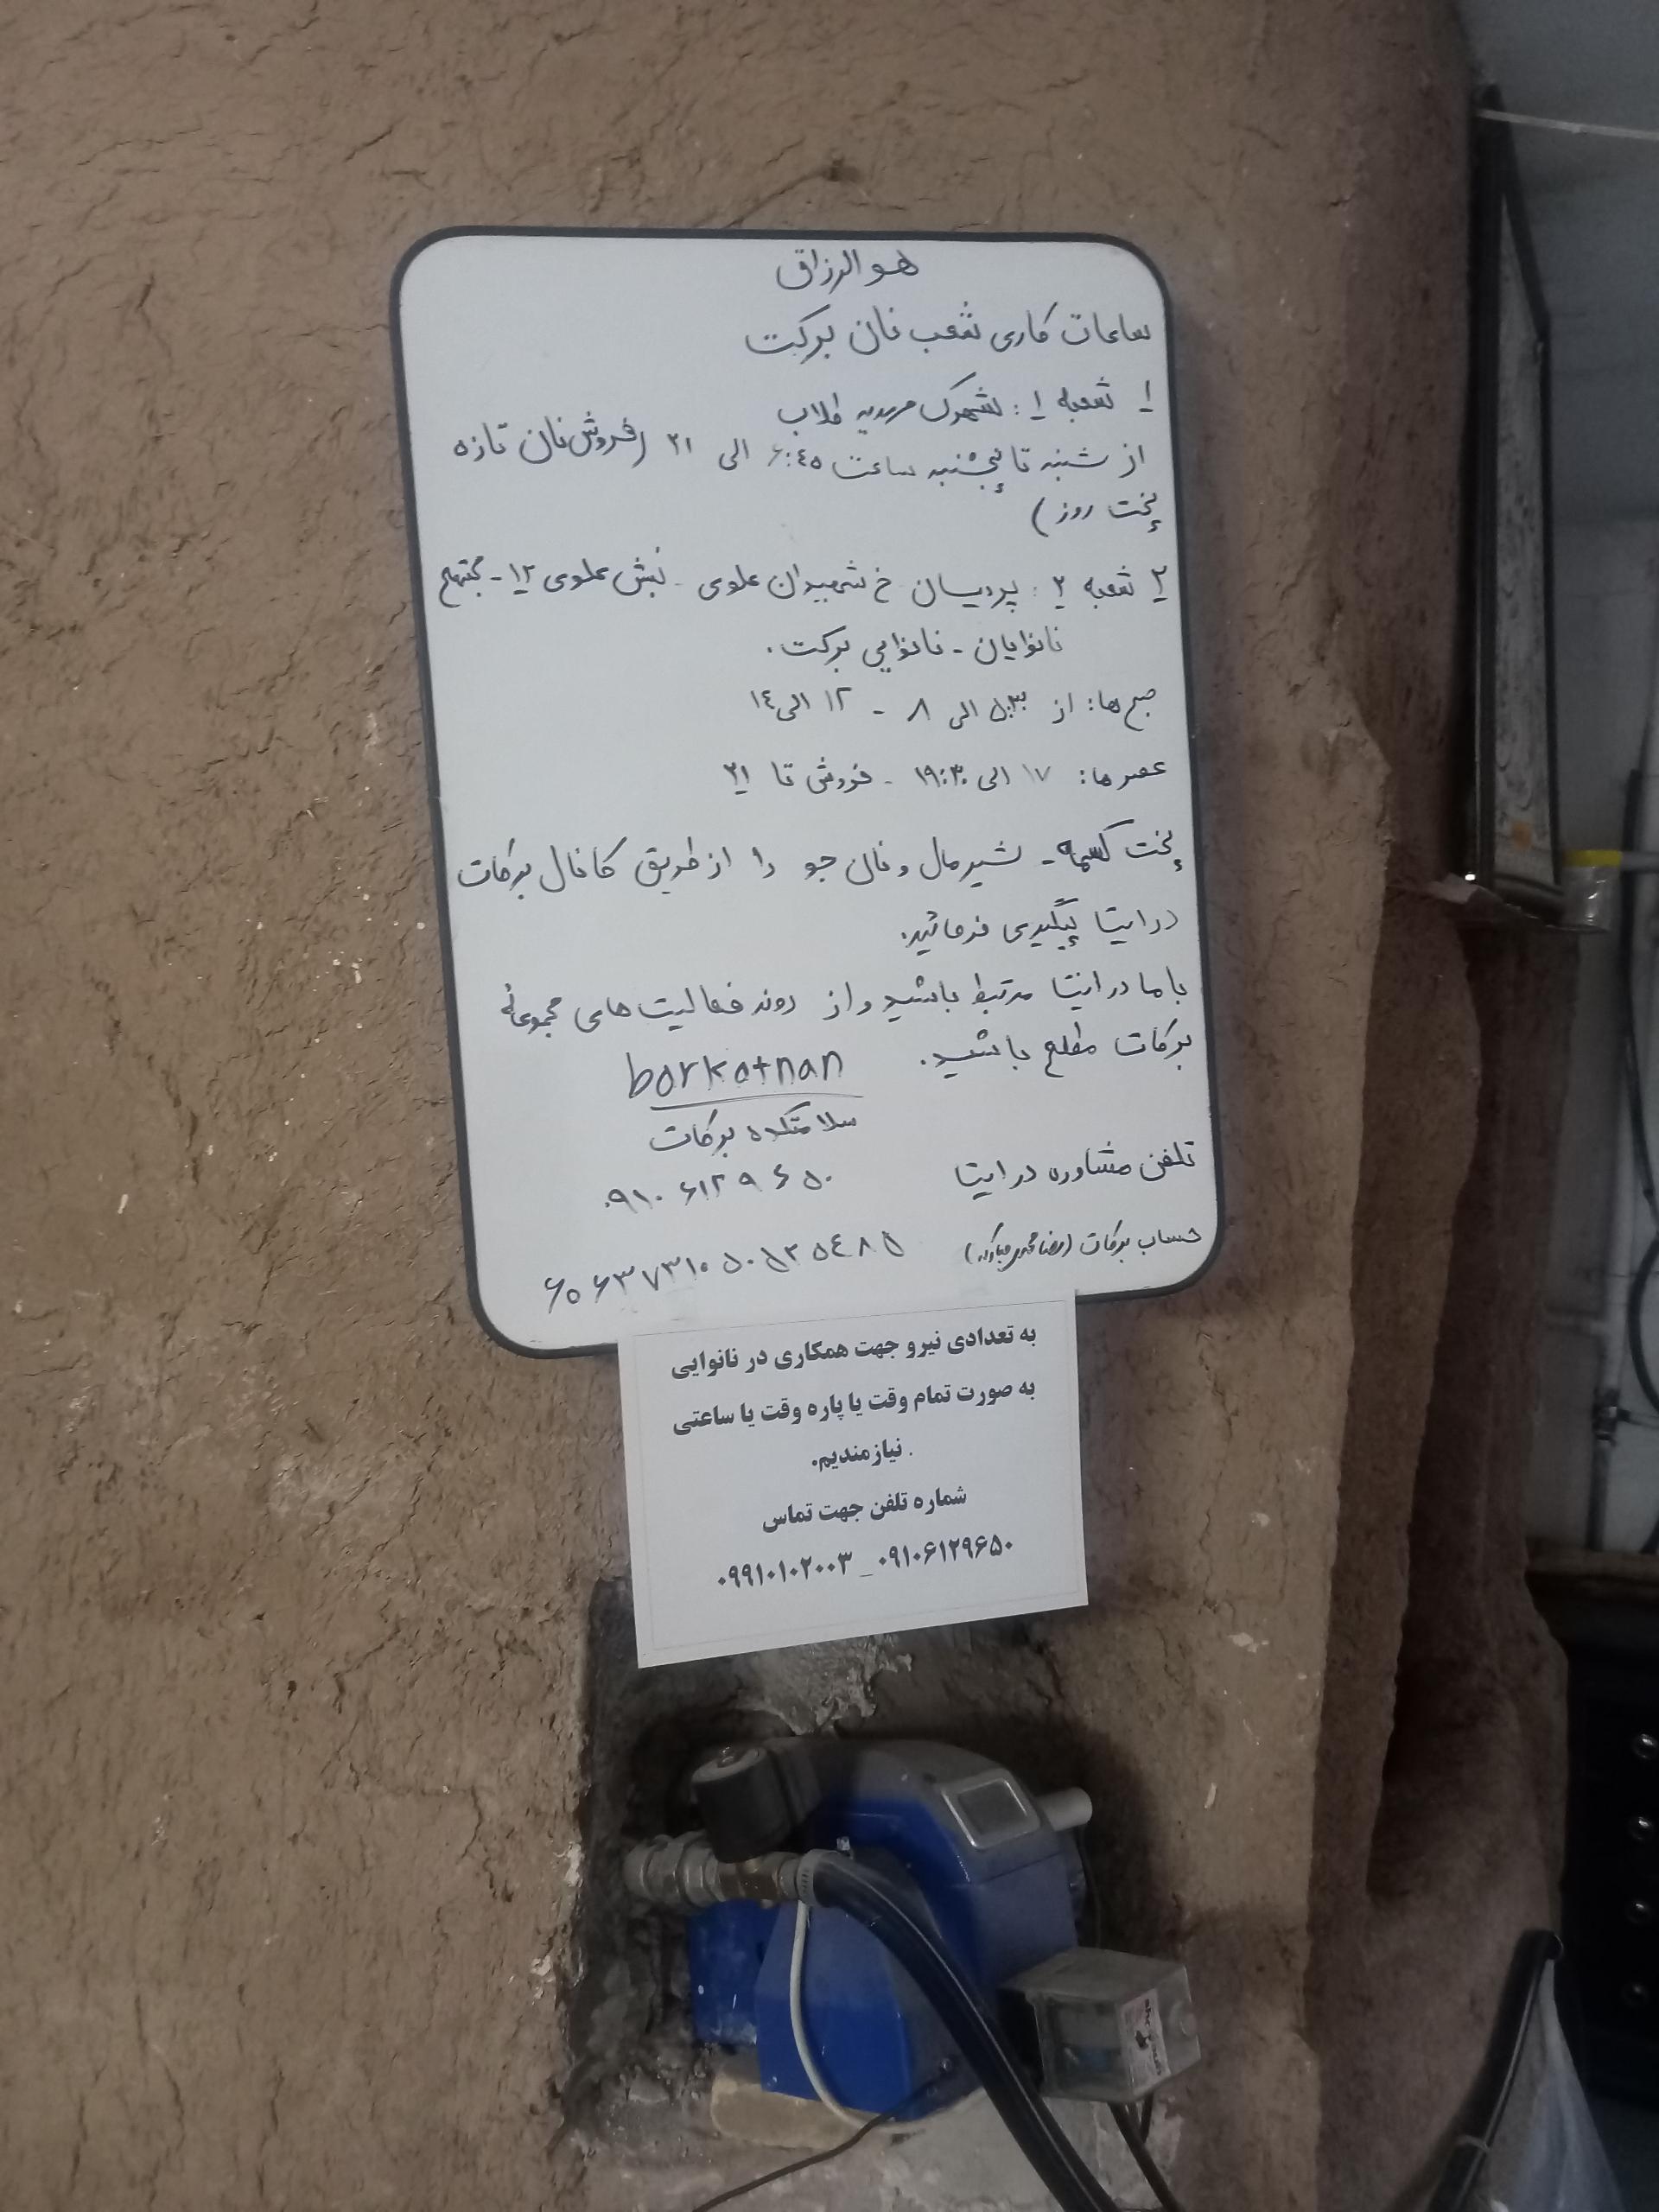 هو الرزاق
ساعات کاری شعب نان برکت
۱ شعبه ۱: شهرک مهدیه طلاب
از شنبه تا پنجشنبه ساعت ۶:۴۵ الی ۲۱ (فروش نان تازه
پخت روز)
۲ شعبه ۲: پردیسان خ شهیدان علوی - نبش علوی ۱۲ - مجتمع
نانوایان - نانوایی برکت.
صبح ها: از ۵:۳۰ الی ۸ - ۱۲ الی ۱۴
عصر ها: ۱۷ الی ۱۹:۳۰ - فروش تا ۲۱
پخت کسمه - شیرمال و نان جو را از طریق کانال برکات
در ایتا پیگیری فرمائید.
با ما در ایتا مرتبط باشید و از روند فعالیت های مجموعه
برکات مطلع باشید.
barkatnan
سلامتکده برکات
تلفن مشاوره در ایتا ۰۹۱۰ ۶۱۲۹ ۶۵۰
حساب برکات
به تعدادی نیرو جهت همکاری در نانوایی
به صورت تمام وقت یا پاره وقت یا ساعتی
. نیازمندیم.
شماره تلفن جهت تماس
۰۹۱۰۶۱۲۹۶۵۰ _ ۰۹۹۱۰۱۰۲۰۰۳